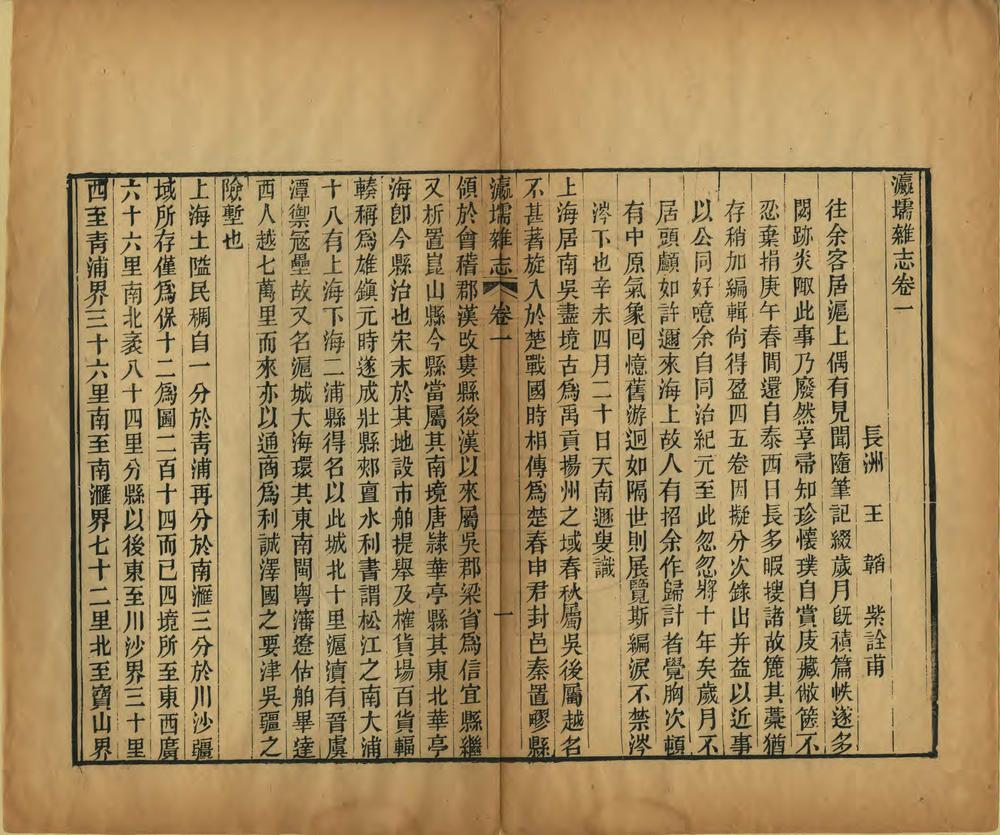 瀛壖雜志卷一
長洲 王 韜 紫詮甫
往余客居滬上偶有見聞隨筆記綴歲月旣積篇帙遂多
閎跡炎陬此事乃廢然享帚知珍懷璞自賞庋藏倣篋不
忍棄捐庚午春間還自泰西日長多暇搜諸故簏其藁猶
存稍加編輯尙得盈四五卷因擬分次錄出并益以近事
以公同好噫余自同治紀元至此忽忽將十年矣歲月不
居頭顱如許邇來海上故人有招余作歸計者覺胸次頓
有中原氣象囘憶舊游迥如隔世則展覽斯編淚不禁涔
涔下也辛未四月二十日天南遯叟識
上海居南吳盡境古爲禹貢揚州之域春秋屬吳後屬越名
不甚著旋入於楚戰國時相傳爲楚春申君封邑秦置疁縣
瀛壖雜志 卷一 一
領於會稽郡漢改婁縣後漢以來屬吳郡梁省爲信宜縣繼
又析置崑山縣今縣當屬其南境唐隸華亭縣其東北華亭
海卽今縣治也宋末於其地設市舶提舉及榷貨場百貨輻
輳稱爲雄鎭元時遂成壯縣郟亶水利書謂松江之南大浦
十八有上海下海二浦縣得名以此城北十里滬瀆有晉虞
潭禦寇壘故又名滬城大海環其東南閩粤瀋遼估舶畢達
西人越七萬里而來亦以通商爲利誠澤國之要津吳疆之
險塹也
上海土隘民稠自一分於靑浦再分於南滙三分於川沙疆
域所存僅爲保十二爲圖二百十四而已四境所至東西廣
六十六里南北袤八十四里分縣以後東至川沙界三十里
西至靑浦界三十六里南至南滙界七十二里北至寶山界